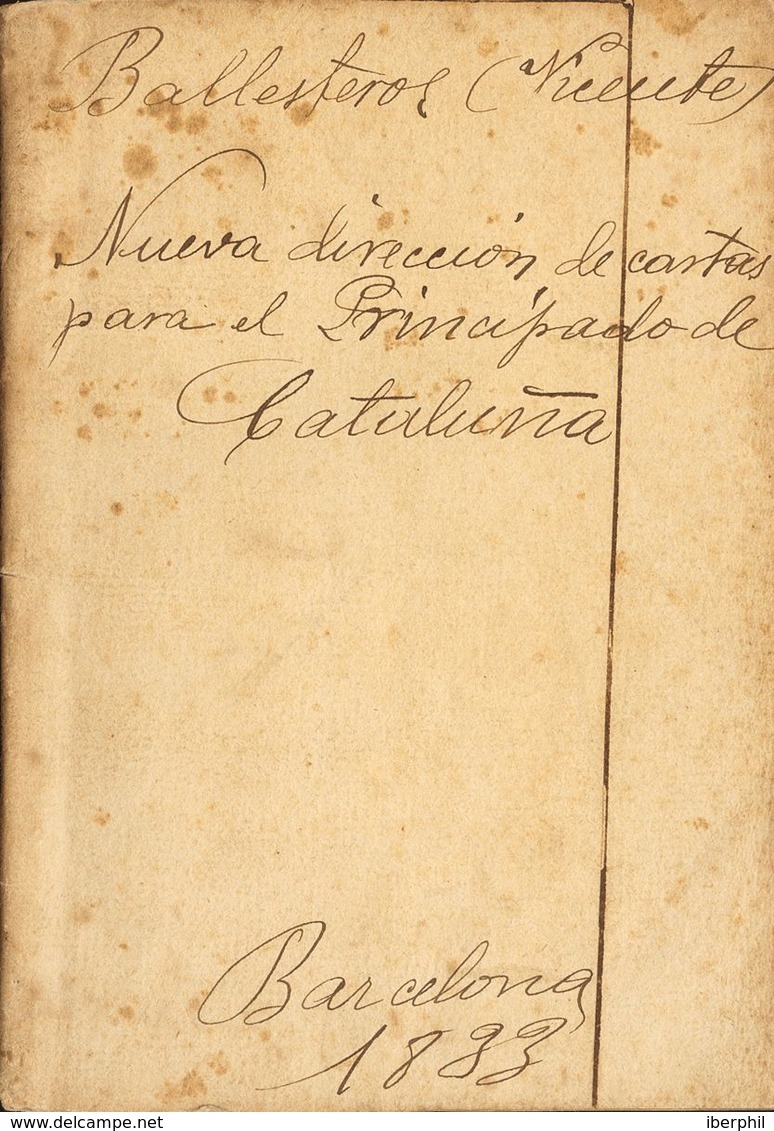 Ballesteros (Vicente)
Nueva dirección de cartas
para el Principado de
Cataluña
Barcelona
1833
delcampe.net
iberphil